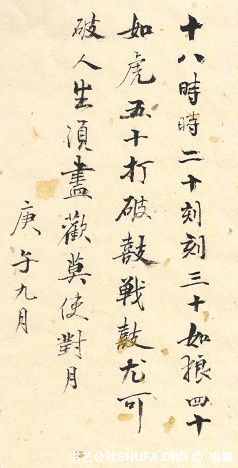 十八時時二十刻刻三十如狼四十
如虎五十打破鼓戰鼓尤可
破人生須盡歡莫使對月
庚午九月
书艺公社SHUFA.ORG@